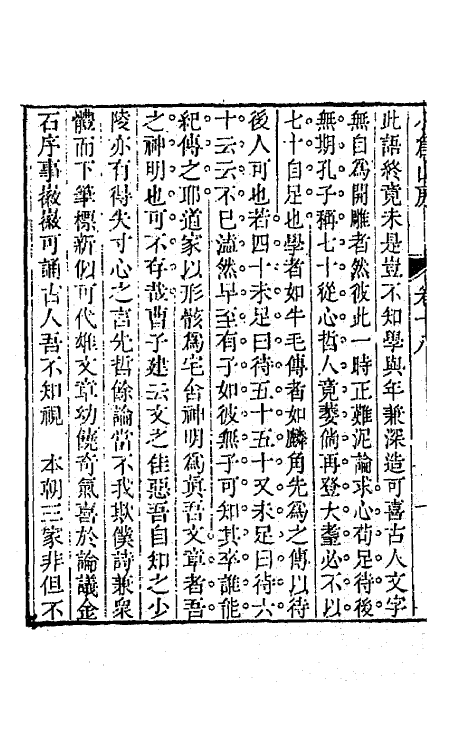 小倉山房
卷十八
此語終竟未是豈不知學與年兼深造可喜古人文字
無自為開雕者然彼此一時正難泥論求心苟足待後
無期孔子稱七十從心哲人竟薨倘再登大耋必不以
七十自足也學者如牛毛傳者如麟角先為之傳以待
後人可也若四十未足曰待五十五十又未足曰待六
十云云不已溘然早至有子如彼無子可知其卒誰能
紀傳之耶道家以形骸為宅舍神明為真吾文章者吾
之神明也可不存哉曹子建云文之佳惡吾自知之少
陵亦有得失寸心之言先哲餘論當不我欺僕詩兼衆
體而下筆標新似可代雄文章幼饒奇氣喜於論議金
石序事徽徽可誦古人吾不知視 本朝三家非但不